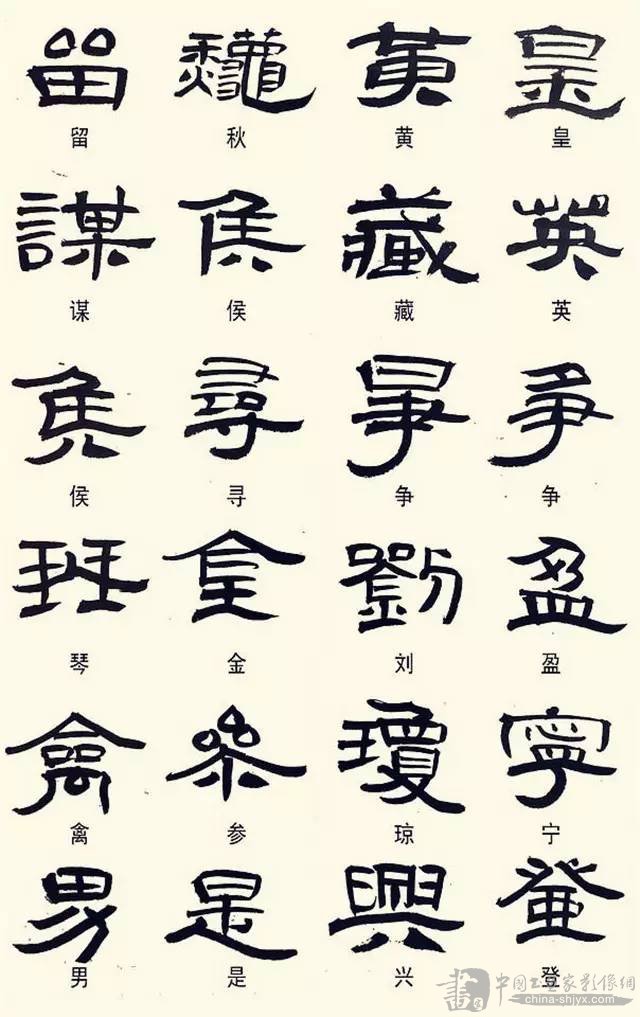 留 秋 黄 皇
留 秋 黄 皇
謀 侯 藏 英
谋 侯 藏 英
侯 尋 爭 爭
侯 寻 争 争
琴 金 劉 盈
琴 金 刘 盈
禽 參 瓊 寧
禽 参 琼 宁
男 是 興 登
男 是 兴 登
中国书画家影像網
china-shjyx.com